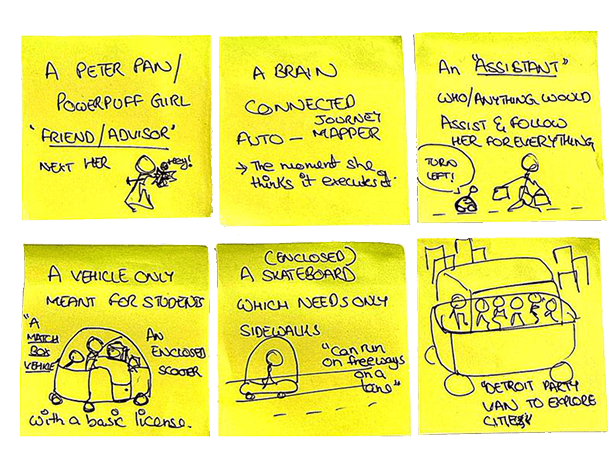 A PETER PAN/
POWERPUFF GIRL
"FRIEND/ADVISOR"
NEXT HER
Hey!
A BRAIN
CONNECTED
JOURNEY
AUTO - MAPPER
→ The moment she
thinks it executes it.
An "ASSISTANT"
WHO/ANYTHING WOULD
ASSIST & FOLLOW
HER FOR EVERYTHING
TURN
LEFT!
A VEHICLE ONLY
MEANT FOR STUDENTS
"A
MATCH
BOX
VEHICLE"
AN
ENCLOSED
SCOOTER
with a basic license.
(ENCLOSED)
A SKATEBOARD
WHICH NEEDS ONLY
SIDEWALKS
"Can run
on freeways
on a
lane"
"DETROIT PARTY
VAN TO EXPLORE
CITIES"